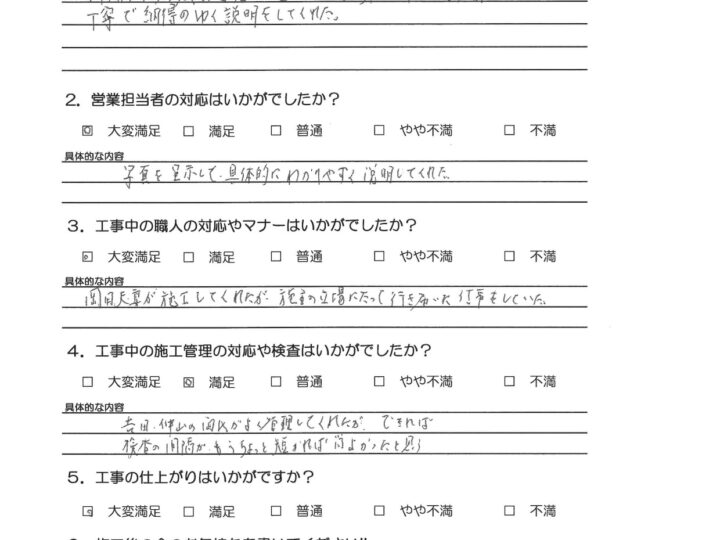 丁寧で納得のゆく説明をしてくれた。
2. 営業担当者の対応はいかがでしたか？
大変満足 □ 満足 □ 普通 □ やや不満 □ 不満
具体的な内容
写真を呈示して、具体的にわかりやすく説明してくれた。
3. 工事中の職人の対応やマナーはいかがでしたか？
大変満足 □ 満足 □ 普通 □ やや不満 □ 不満
具体的な内容
が施工してくれたが、施主の立場にたって行き届いた仕事をしていた。
4. 工事中の施工管理の対応や検査はいかがでしたか？
□ 大変満足 満足 □ 普通 □ やや不満 □ 不満
具体的な内容
吉田、仲山の両氏がよく管理してくれたが、できれば
検査の間隔が、もうちょっと短かければ尚よかったと思う
5. 工事の仕上がりはいかがですか？
大変満足 □ 満足 □ 普通 □ やや不満 □ 不満